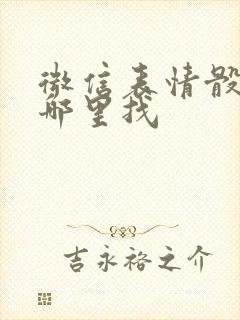 微信表情骰
哪里找
吉永裕之介